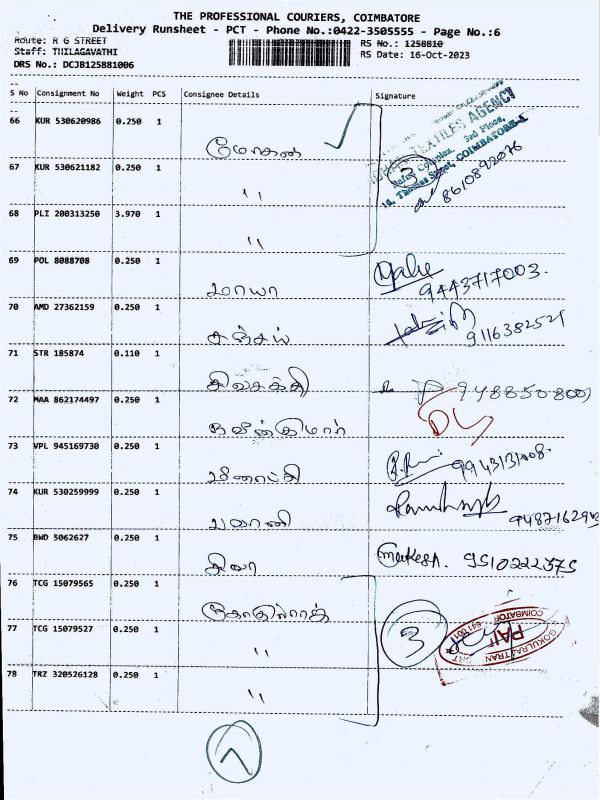 THE PROFESSIONAL COURIERS, COIMBATORE
Delivery Runsheet - PCT - Phone No.:0422-3505555 - Page No.:6
Route: R G STREET
RS No.: 1258810
Staff: THILAGAVATHI
RS Date: 16-Oct-2023
DRS No.: DCJB125881006
S No Consignment No Weight PCS Consignee Details Signature
66 KUR 530620986 0.250 1
மோகன்
AGENCY
3rd Floor,
COIMBATORE-1
67 KUR 530621182 0.250 1
" 3
8610892076
68 PLI 200313250 3.970 1
"
69 POL 8088708 0.250 1
மாயா
9443717003.
70 AMD 27362159 0.250 1
சஞ்சய்
9116382521
71 STR 185874 0.110 1
சிவசக்தி
72 MAA 862174497 0.250 1
நவீன்குமார்
DL
73 VPL 945169730 0.250 1
மீனாட்சி
9943131008.
74 KUR 530259999 0.250 1
பரணி
75 BWD 5062627 0.250 1
சிவா
Mukesh. 9510222375
76 TCG 15079565 0.250 1
கோகுல்ராத்
77 TCG 15079527 0.250 1
" 3
COIMBATORE
641 001
78 TRZ 320526128 0.250 1
"